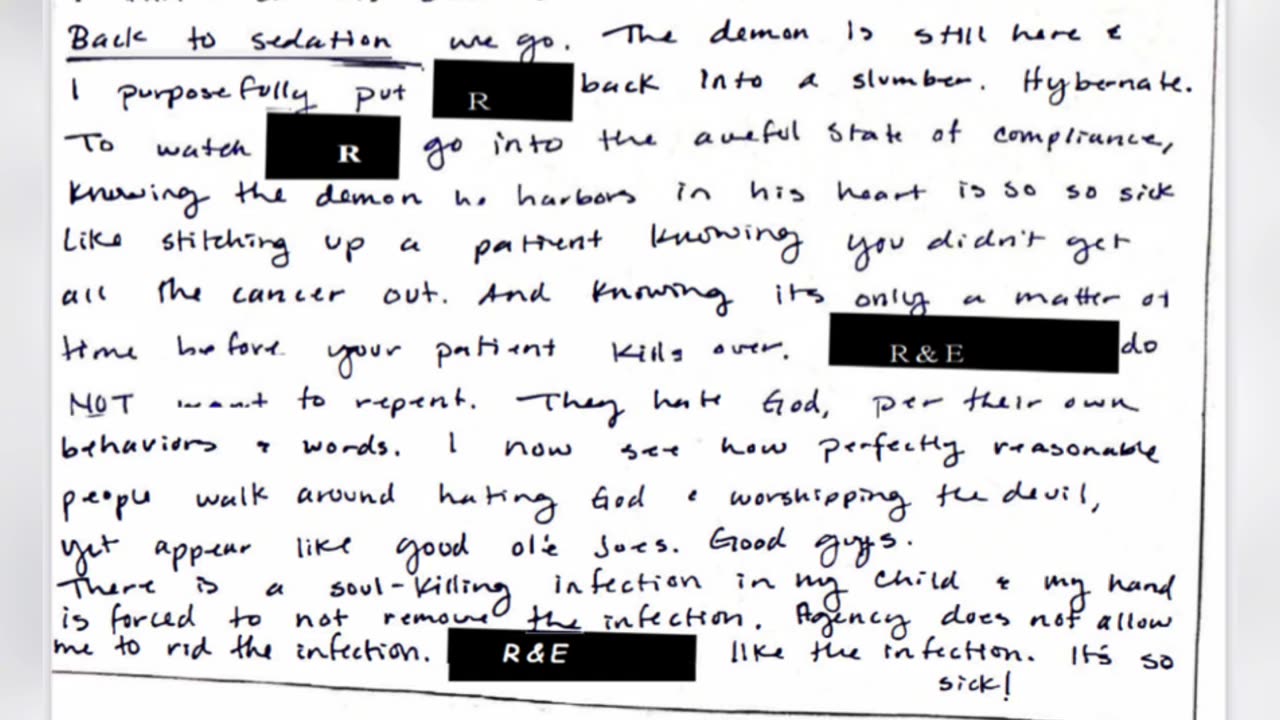 Back to sedation we go. The demon is still here &
I purposefully put R back into a slumber. Hybernate.
To watch R go into the aweful state of compliance,
knowing the demon he harbors in his heart is so so sick
Like stitching up a patient knowing you didn't get
all the cancer out. And knowing its only a matter of
time before your patient kills over. R & E do
NOT want to repent. They hate God, per their own
behaviors & words. I now see how perfectly reasonable
people walk around hating God & worshipping the devil,
yet appear like good ol'e Joes. Good guys.
There is a soul-killing infection in my child & my hand
is forced to not remove the infection. Agency does not allow
me to rid the infection. R & E like the infection. It's so
sick!